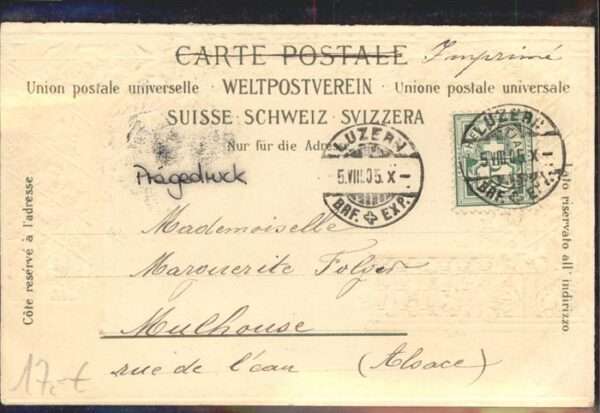 CARTE POSTALE Imprimé
Union postale universelle - WELTPOSTVEREIN - Unione postale universale
SUISSE · SCHWEIZ · SVIZZERA
Nur für die Adresse
LUZERN
5.VIII.05. X-
BRF. EXP.
LUZERN
5.VIII.05. X-
BRF. EXP.
Prägedruck
Côte resérvé à l'adresse
Lato riservato all' indirizzo
Mademoiselle
Marguerite Folger
Mulhouse
rue de l'eau (Alsace)
17,-€